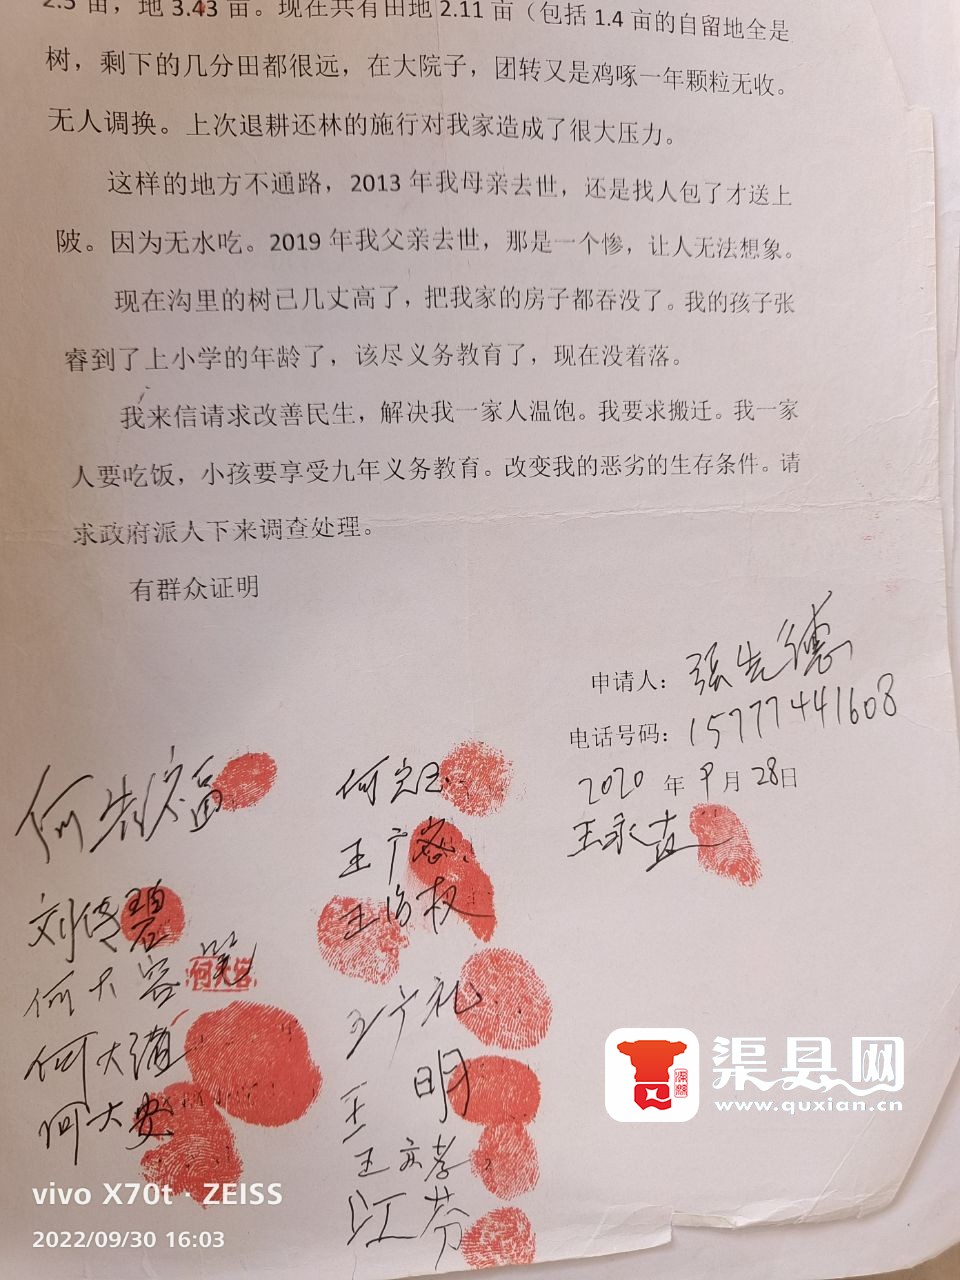 2.5 亩，地 3.43 亩。现在共有田地 2.11 亩（包括 1.4 亩的自留地全是
树，剩下的几分田都很远，在大院子，团转又是鸡啄一年颗粒无收。
无人调换。上次退耕还林的施行对我家造成了很大压力。
这样的地方不通路，2013 年我母亲去世，还是找人包了才送上
陂。因为无水吃。2019 年我父亲去世，那是一个惨，让人无法想象。
现在沟里的树已几丈高了，把我家的房子都吞没了。我的孩子张
睿到了上小学的年龄了，该尽义务教育了，现在没着落。
我来信请求改善民生，解决我一家人温饱。我要求搬迁。我一家
人要吃饭，小孩要享受九年义务教育。改变我的恶劣的生存条件。请
求政府派人下来调查处理。
有群众证明
申请人：张先德
电话号码：15777441608
2020 年 9 月 28 日
何先福
何定玉
王永孝
刘传碧
王广
王治权
何大容笔
何大
王广礼
何大清
王明
何大安
王永孝
江芬
渠县网
www.quxian.cn
vivo X70t · ZEISS
2022/09/30 16:03